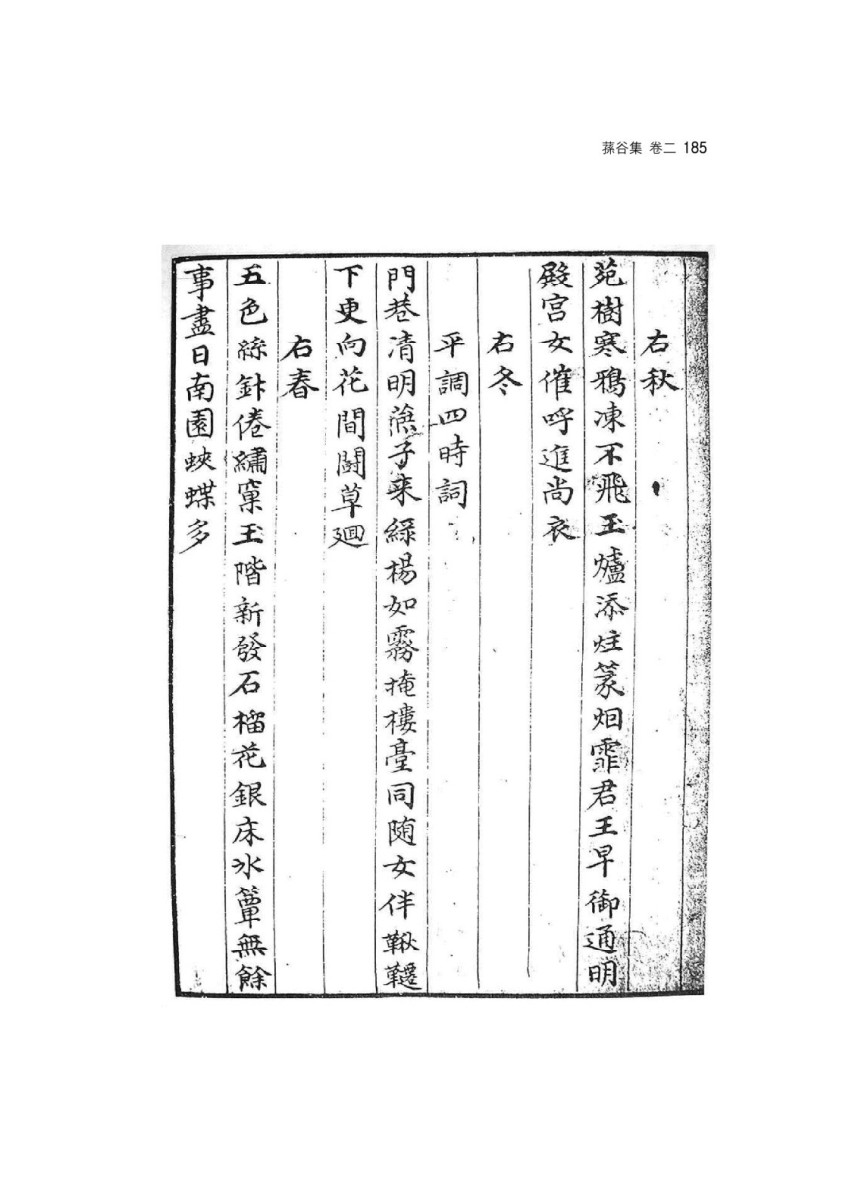 蓀谷集 卷二 185
右秋
苑樹寒鴉凍不飛玉爐添炷篆烟霏君王早御通明
殿宮女催呼進尚衣
右冬
平調四時詞
門巷清明燕子来綠楊如霧掩樓臺同隨女伴鞦韆
下更向花間鬪草廻
右春
五色絲針倦繡窠玉階新發石榴花銀床氷簟無餘
事盡日南園蛺蝶多